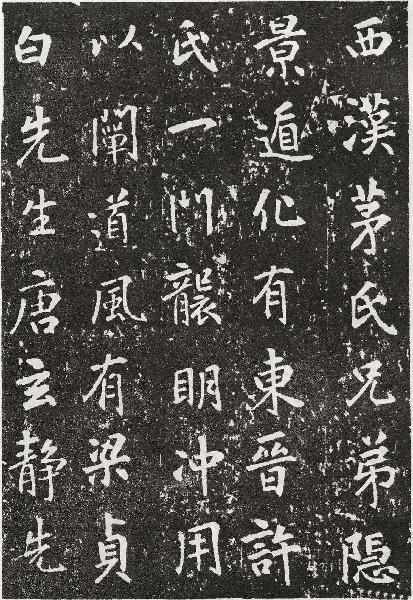 西漢茅氏兄弟隱
景遁化有東晉許
氏一門襲明沖用
以闡道風有梁貞
白先生唐玄静先